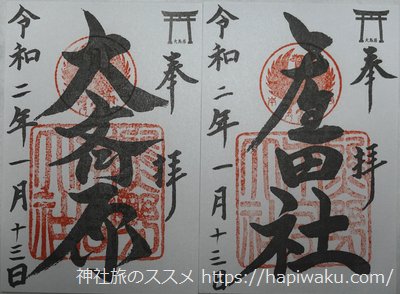 奉拝
産田社
令和二年一月十三日
奉拝
大斎原
令和二年一月十三日
神社旅のススメ https://hapiwaku.com/